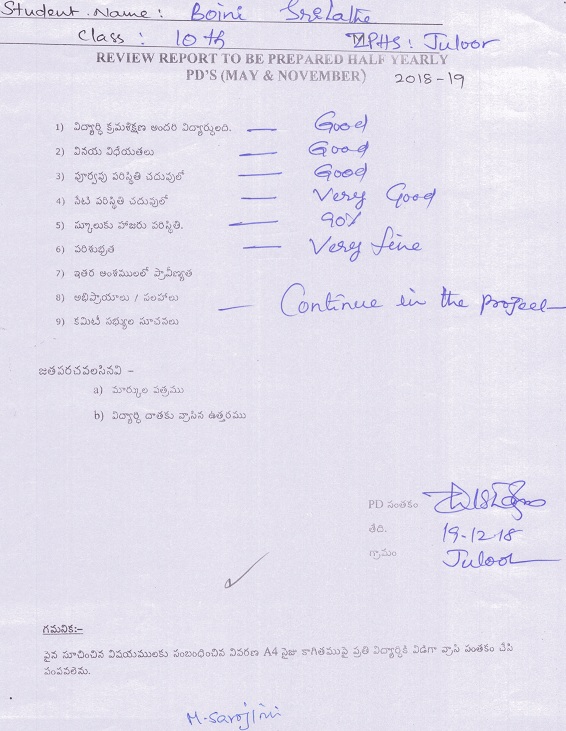 Student Name : Boini Srelatha
Class : 10 th ZPHS : Juloor
REVIEW REPORT TO BE PREPARED HALF YEARLY
PD'S (MAY & NOVEMBER) 2018-19
1) విద్యార్థి క్రమశిక్షణ అందరి విద్యార్థులది. — Good
2) వినయ విధేయతలు — Good
3) పూర్వపు పరిస్థితి చదువులో — Good
4) నేటి పరిస్థితి చదువులో — Very Good
5) స్కూలుకు హాజరు పరిస్థితి. — 90%
6) పరిశుభ్రత — Very fine
7) ఇతర అంశములలో ప్రావీణ్యత
8) అభిప్రాయాలు / సలహాలు — Continue in the project
9) కమిటీ సభ్యుల సూచనలు
జతపరచవలసినవి –
a) మార్కుల పత్రము
b) విద్యార్థి దాతకు వ్రాసిన ఉత్తరము
PD సంతకం
తేది. 19-12-18
గ్రామం Juloor
గమనిక:-
పైన సూచించిన విషయములకు సంబంధించిన వివరణ A4 సైజు కాగితముపై ప్రతి విద్యార్థికి విడిగా వ్రాసి సంతకం చేసి
పంపవలెను.
M. Sarojini